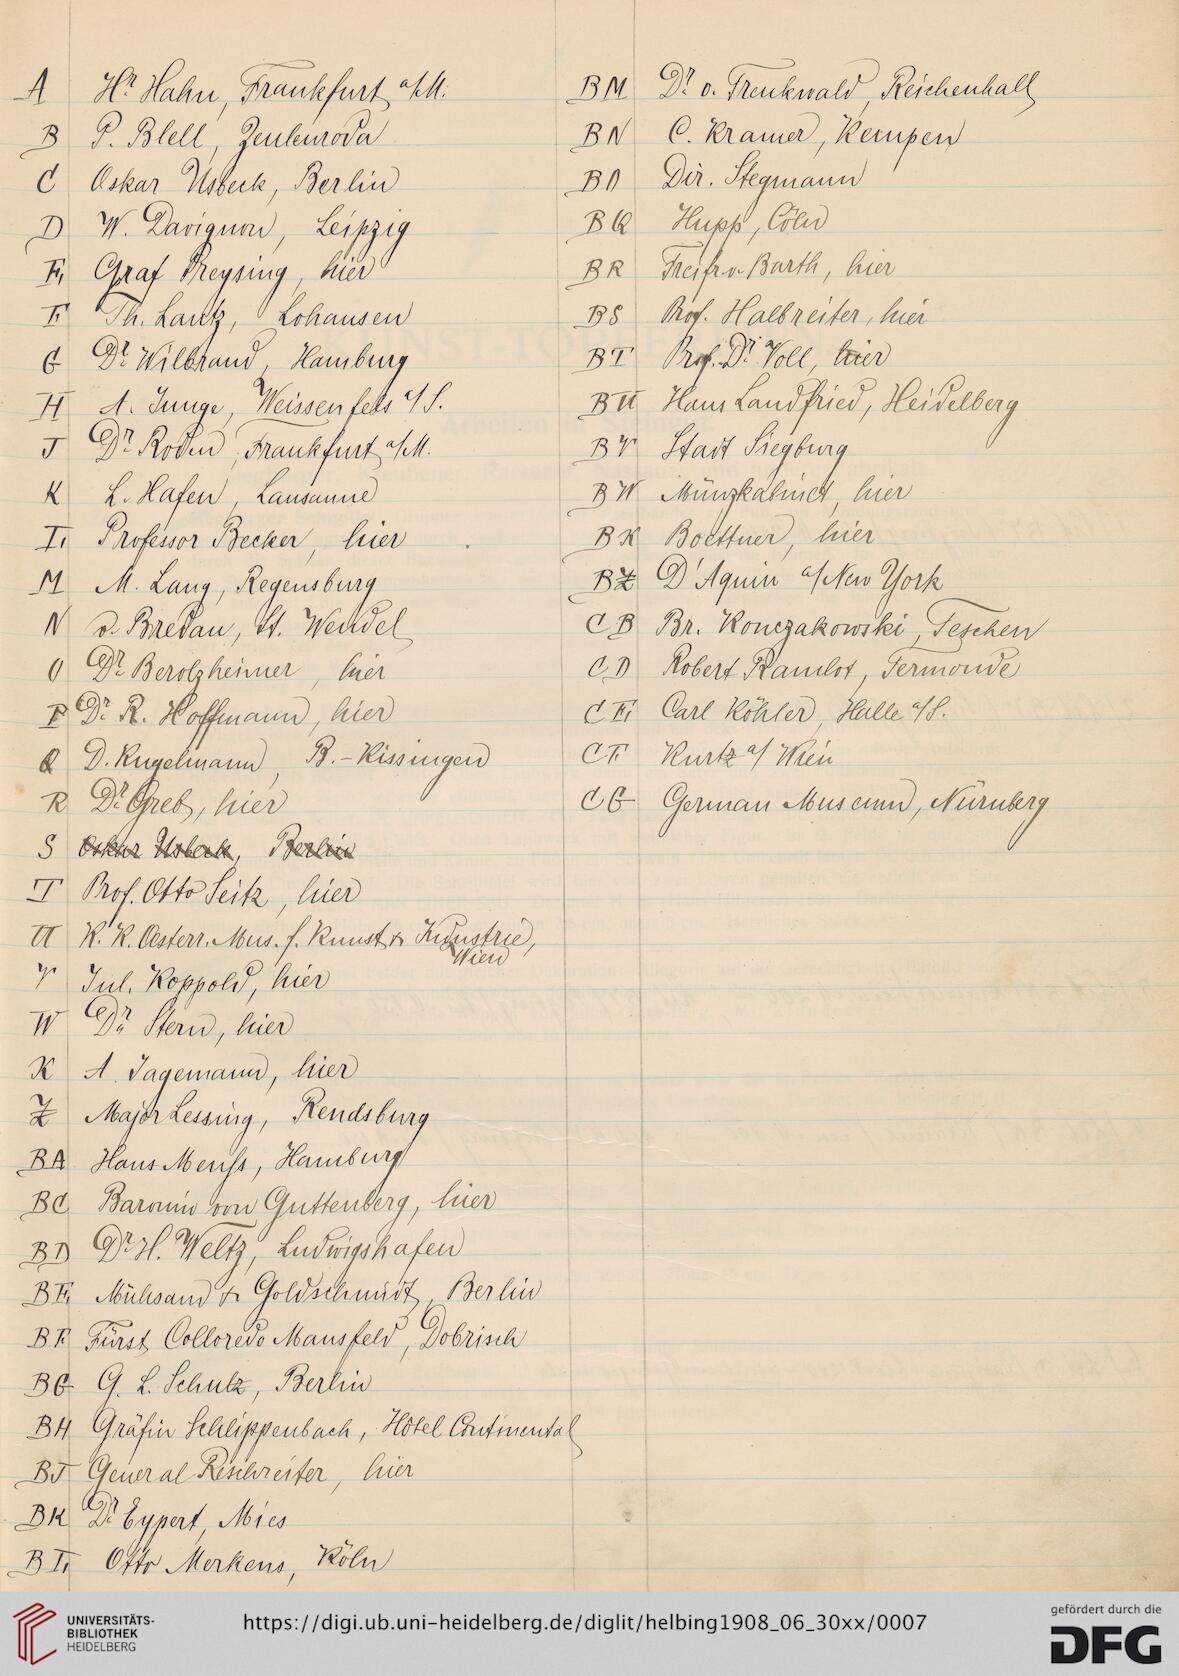 A Hr. Hahn, Frankfurt a/M.
B P. Blell, Zeulenroda
C Oskar Usbeck, Berlin
D W. Davignon, Leipzig
E Graf Preysing, hier
F Th. Lantz, Lohausen
G Dr. Wilbrand, Hamburg
H A. Junge, Weissenfels a/S.
J Dr. Roden, Frankfurt a/M.
K L. Hafen, Lausanne
L Professor Becker, hier
M M. Lang, Regensburg
N v. Bredau, St. Wendel
O Dr. Berolzheimer, hier
P Dr. R. Hoffmann, hier
Q D. Kugelmann, B.-Kissingen
R Dr. Greb, hier
S Oskar Usbeck, Berlin
T Prof. Otto Seitz, hier
U K. K. Oesterr. Mus. f. Kunst & Industrie,
Wien
V Jul. Koppold, hier
W Dr. Stern, hier
X A. Jagemann, hier
Z Major Lessing, Rendsburg
BA Hans Meuss, Hamburg
BC Baronin von Guttenberg, hier
BD Dr. H. Weltz, Ludwigshafen
BE Mühsam & Goldschmidt, Berlin
BF Fürst Colloredo Mansfeld, Dobrisch
BG G. L. Schulz, Berlin
BH Gräfin Schlippenbach, Hôtel Continental
BJ General Reschreiter, hier
BK Dr. Eypert, Mies
BL Otto Merkens, Köln
BM Dr. v. Trenkwald, Reichenhall
BN C. Kramer, Kempen
BO Dir. Stegmann
BQ Hupp, Cöln
BR Freifr v. Barth, hier
BS Prof. Halbreiter, hier
BT Prof. Dr. Voll, hier
BU Hans Landfried, Heidelberg
BV Stadt Siegburg
BW Münzkabinet, hier
BX Boettner, hier
BZ D'Aquin a/New York
CB Br. Konczakowski, Teschen
CD Robert Ramlot, Termonde
CE Carl Köhler, Halle a/S.
CF Kurtz a/ Wien
CG German Museum, Nürnberg
UNIVERSITÄTS-
BIBLIOTHEK
HEIDELBERG
https://digi.ub.uni-heidelberg.de/diglit/helbing1908_06_30xx/0007
gefördert durch die
DFG